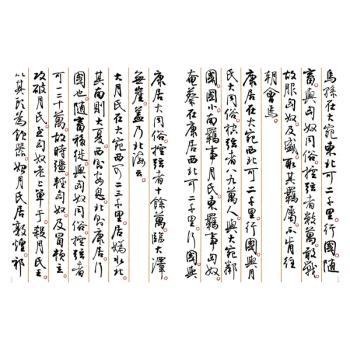 烏孫在大宛東北可二千里行國隨
畜與匈奴同俗控弦者數萬敢戰
故服匈奴及盛取其羈屬不肯往
朝會焉
康居在大宛西北可二千里行國與月
氏大同俗控弦者八九萬人與大宛鄰
國國小南羈事月氏東羈事匈奴
奄蔡在康居西北可二千里行國與
康居大同俗控弦者十餘萬臨大澤
無崖蓋乃北海云
大月氏在大宛西可二三千里居媯水北
其南則大夏西則安息北則康居行
國也隨畜移徙與匈奴同俗控弦者
可一二十萬故時彊輕匈奴及冒頓立
攻破月氏至匈奴老上單于殺月氏王
以其頭為飲器始月氏居敦煌祁